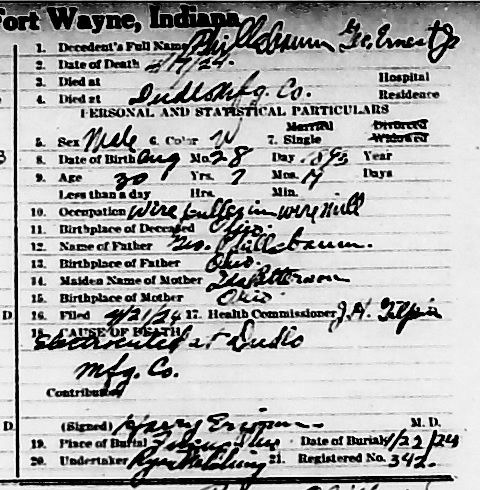 Fort Wayne, Indiana
1. Decedent's Full Name Phillabaum Geo. Ernest Jr
2. Date of Death 4/19/24.
3. Died at Hospital
4. Died at Dudlo Mfg. Co. Residence
PERSONAL AND STATISTICAL PARTICULARS
Married Divorced
5. Sex Male 6. Color W 7. Single Widowed
8. Date of Birth Aug Mo. 28 Day 1893 Year
9. Age 30 Yrs. 7 Mos. Days
Less than a day Hrs. Min.
10. Occupation Wire puller in wire mill
11. Birthplace of Deceased Ohio.
12. Name of Father Geo. Phillabaum.
13. Birthplace of Father Ohio.
14. Maiden Name of Mother Patterson
15. Birthplace of Mother Ohio
D 16. Filed 4/21/24 17. Health Commissioner J.H. Gilpin
18. CAUSE OF DEATH
Electrocuted at Dudlo
Mfg. Co.
Contributory
D. (Signed) Harry M. D.
19. Place of Burial Date of Burial 4/22/24
20. Undertaker 21. Registered No. 342.